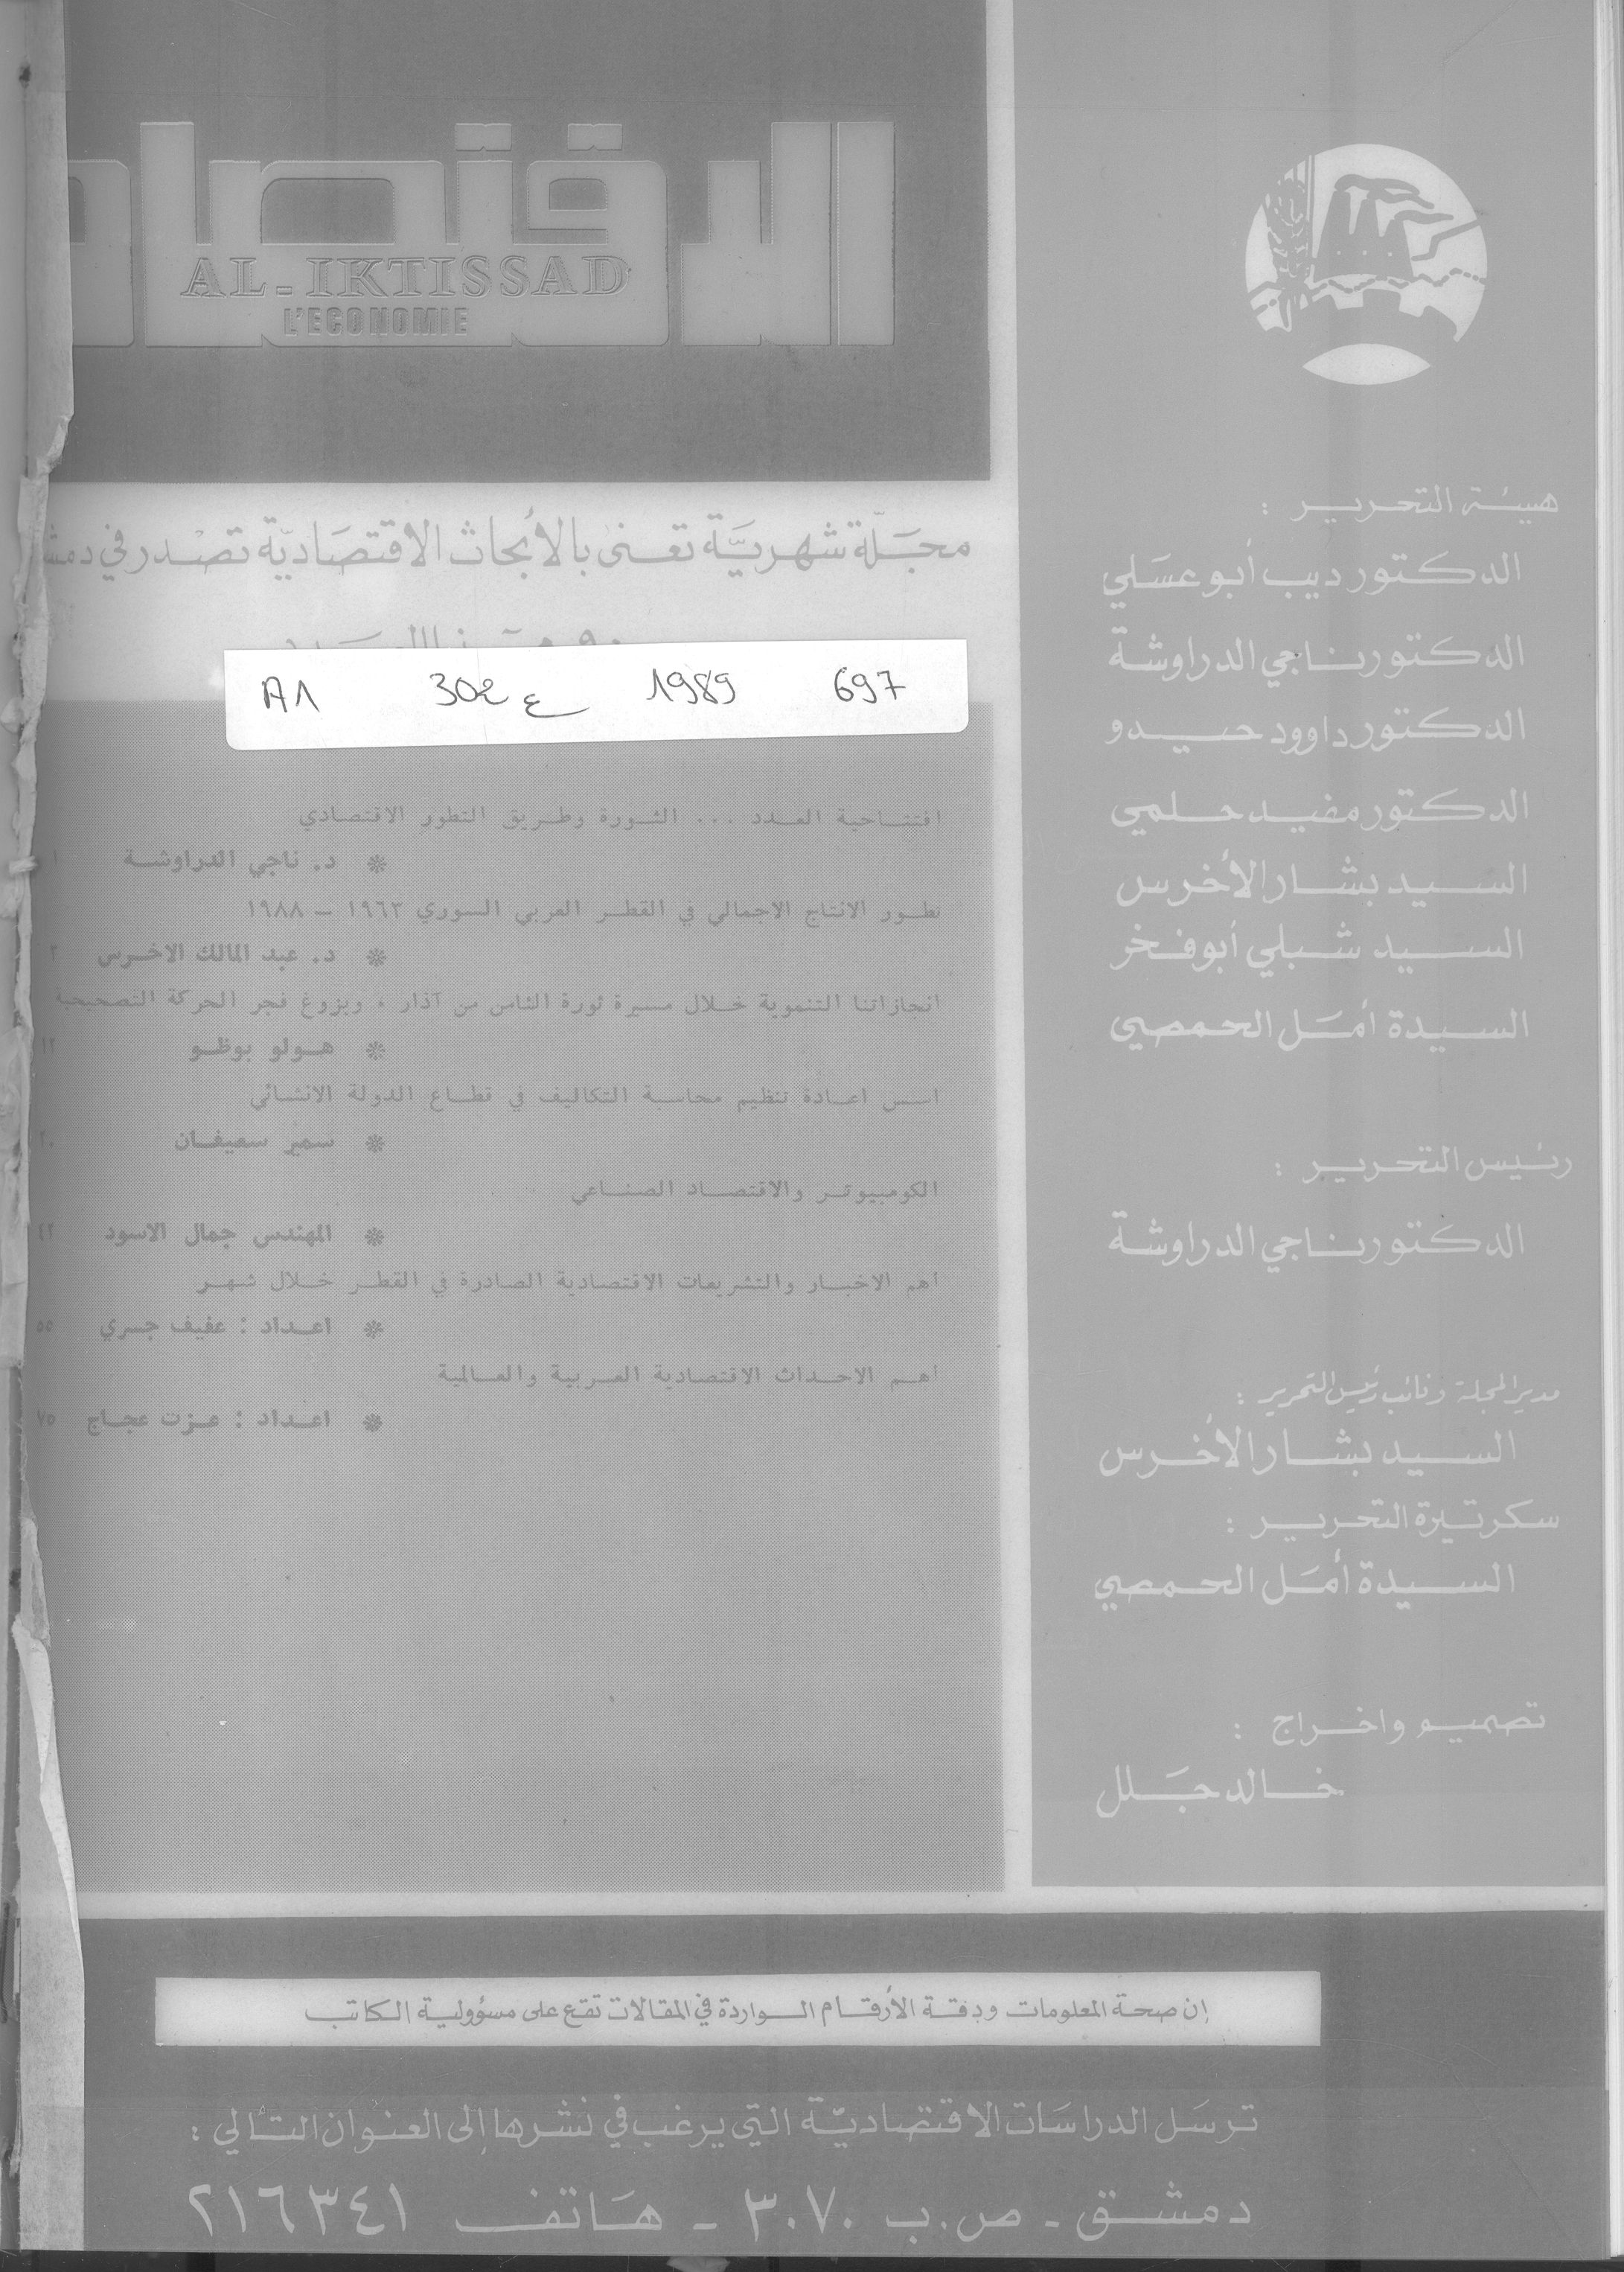 الاقتصاد
AL-IKTISSAD
L'ECONOMIE
مجلة شهرية تعنى بالأبحاث الاقتصادية تصدر في
A1 302 ع 1989 697
افتتاحية العدد ... الثورة وطريق التطور الاقتصادي
* د. ناجي الدراوشة ١
تطور الانتاج الاجمالي في القطر العربي السوري ١٩٦٣ - ١٩٨٨
* د. عبد المالك الاخرس ٣
انجازاتنا التنموية خلال مسيرة ثورة الثامن من آذار ، وبزوغ فجر الحركة التصحيحية
* هولو بوظو ١٢
اسس اعادة تنظيم محاسبة التكاليف في قطاع الدولة الانشائي
* سمير سعيفان ٢٠
الكومبيوتر والاقتصاد الصناعي
* المهندس جمال الاسود ٤٢
اهم الاخبار والتشريعات الاقتصادية الصادرة في القطر خلال شهر
* اعداد : عفيف جسري ٥٥
اهم الاحداث الاقتصادية العربية والعالمية
* اعداد : عزت عجاج ٧٥
هيئة التحرير :
الدكتور ديب أبو عسلي
الدكتور ناجي الدراوشة
الدكتور داوود حيدو
الدكتور مفيد حلمي
السيد بشار الأخرس
السيد شبلي أبو فخر
السيدة أمل الحمصي
رئيس التحرير :
الدكتور ناجي الدراوشة
مدير المجلة ونائب رئيس التحرير :
السيد بشار الأخرس
سكرتيرة التحرير :
السيدة أمل الحمصي
تصميم واخراج :
خالد جلل
إن صحة المعلومات ودقة الأرقام الواردة في المقالات تقع على مسؤولية الكاتب
ترسل الدراسات الاقتصادية التي يرغب في نشرها إلى العنوان التالي :
دمشق - ص.ب ٣٠٧٠ - هاتف ٢١٦٣٤١